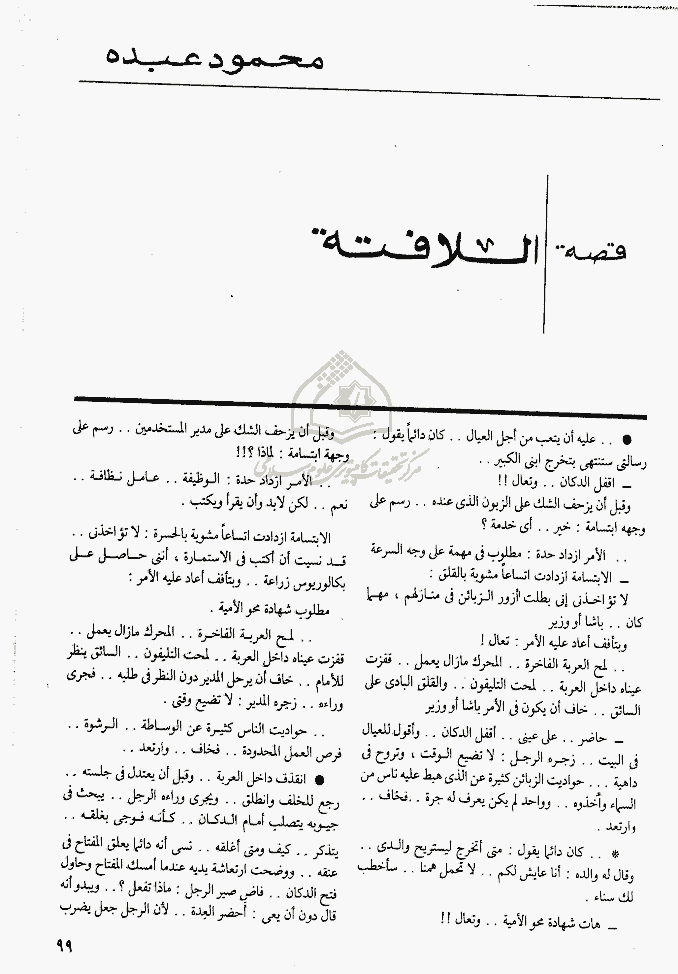 محمود عبده
قصة
اللافتة
● . . عليه أن يتعب من أجل العيال . . كان دائماً يقول :
رسالتى ستنتهى بتخرج ابنى الكبير . .
ــ اقفل الدكان . . وتعال !!
وقبل أن يزحف الشك على الزبون الذى عنده . . رسم على
وجهه ابتسامة : خير . . أى خدمة ؟
. . الأمر ازداد حدة : مطلوب فى مهمة على وجه السرعة
ــ الابتسامة ازدادت اتساعاً مشوبة بالقلق :
لا تؤاخذنى إنى بطلت أزور الزبائن فى منازلهم ، مهما
كان . . باشا أو وزير
وبتأفف أعاد عليه الأمر : تعال !
. . لمح العربة الفاخرة . . المحرك مازال يعمل . . قفزت
عيناه داخل العربة . . لمحت التليفون . . والقلق البادى على
السائق . . خاف أن يكون فى الأمر باشا أو وزير
ــ حاضر . . على عينى . . أقفل الدكان . . وأقول للعيال
فى البيت . . زجره الرجل : لا تضيع الوقت ، وتروح فى
داهية . . . حواديت الزبائن كثيرة عن الذى هبط عليه ناس من
السماء وأخذوه . . وواحد لم يكن يعرف له جرة . . فخاف . .
وارتعد .
* . . كان دائما يقول : متى أتخرج ليستريح والدى . .
وقال له والده : أنا عايش لكم . . لا تحمل همنا . . سأخطب
لك سناء .
ــ هات شهادة محو الأمية . . وتعال !!
وقبل أن يزحف الشك على مدير المستخدمين . . رسم على
وجهة ابتسامة : لماذا ؟!!
. . الأمر ازداد حدة : الوظيفة . . عامل نظافة . .
نعم . . لكن لابد وأن يقرأ ويكتب .
الابتسامة ازدادت اتساعاً مشوبة بالحسرة : لا تؤاخذنى . .
قد نسيت أن أكتب فى الاستمارة ، أننى حاصل على
بكالوريوس زراعة . . وبتأفف أعاد عليه الأمر :
مطلوب شهادة محو الأمية .
. . لمح العربة الفاخرة . . المحرك مازال يعمل . .
قفزت عيناه داخل العربة . . لمحت التليفون . . السائق ينظر
للأمام . . خاف أن يرحل المدير دون النظر فى طلبه . . فجرى
وراءه . . زجره المدير : لا تضيع وقتى .
. . حواديت الناس كثيرة عن الوساطة . . الرشوة . .
فرص العمل المحدودة . . فخاف . . وارتعد . .
● انقذف داخل العربة . . وقبل أن يعتدل فى جلسته . .
رجع للخلف وانطلق . . ويجرى وراءه الرجل . . يبحث فى
جيوبه يتصلب أمام الدكان . . كأنه فوجئ بغلقه . .
يتذكر . . كيف ومتى أغلقه . . نسى أنه دائما يعلق المفتاح فى
عنقه . . ووضحت ارتعاشة يديه عندما أمسك المفتاح وحاول
فتح الدكان . . فاض صبر الرجل : ماذا تفعل ؟ . . ويبدو أنه
قال دون أن يعى : أحضر العدة . . لأن الرجل جعل يضرب
٩٩